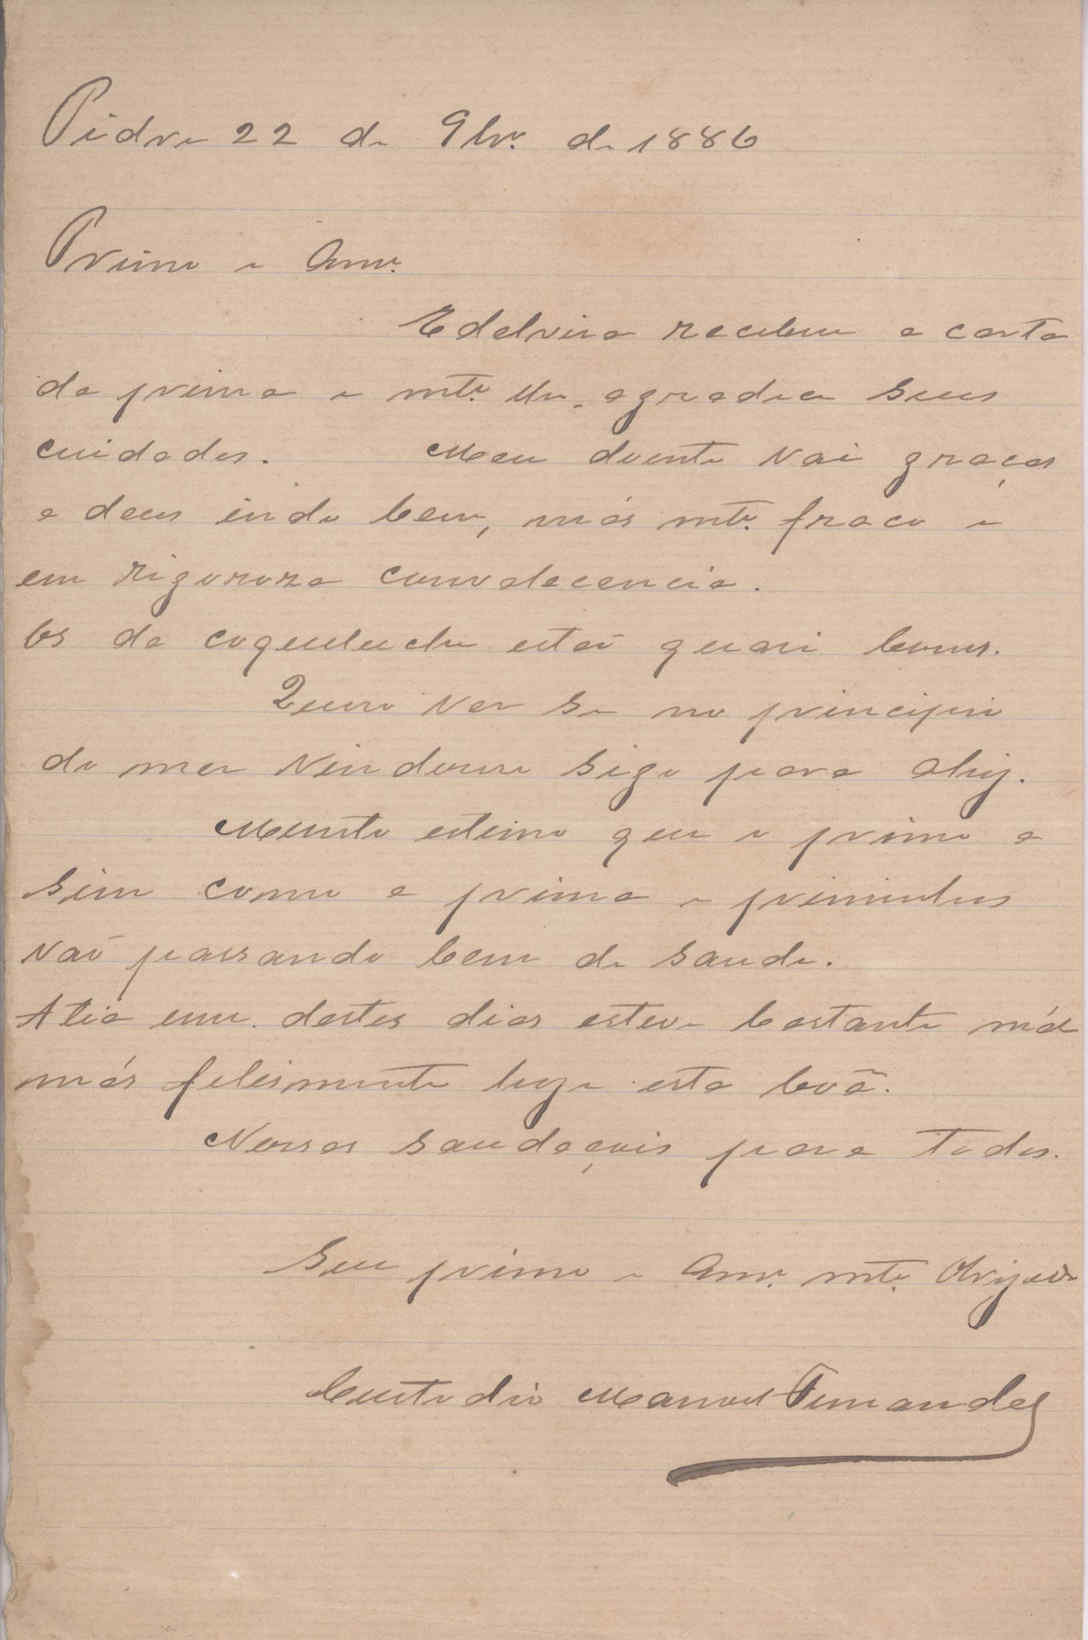 Pidre 22 de 9br.º de 1886
Primo e Am.º
Edelvira recebeu a carta
da prima e mt.º lhe agradece seus
cuidados. Meu doente vai graças
a deus indo bem, más mt.º fraco e
em rigoroza convalecencia.
Os da coqueluche estaõ quasi bons.
Quero ver se no principio
do mez vindouro sigo para ahy.
Muinto estimo que o primo a
sim como a prima e priminhos
vaõ passando bem de saude.
A tia um destes dias esteve bastante mál
más felismente hoje esta boã.
Nossas saudaçois para todos.
Seu primo e Am.º mt.º Obrigado
Custodio Manoel Fernandes